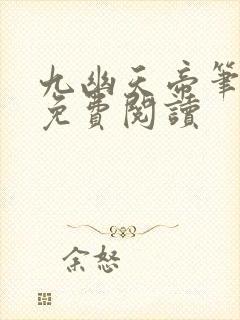 九幽天帝筆
免費閱讀
余怒